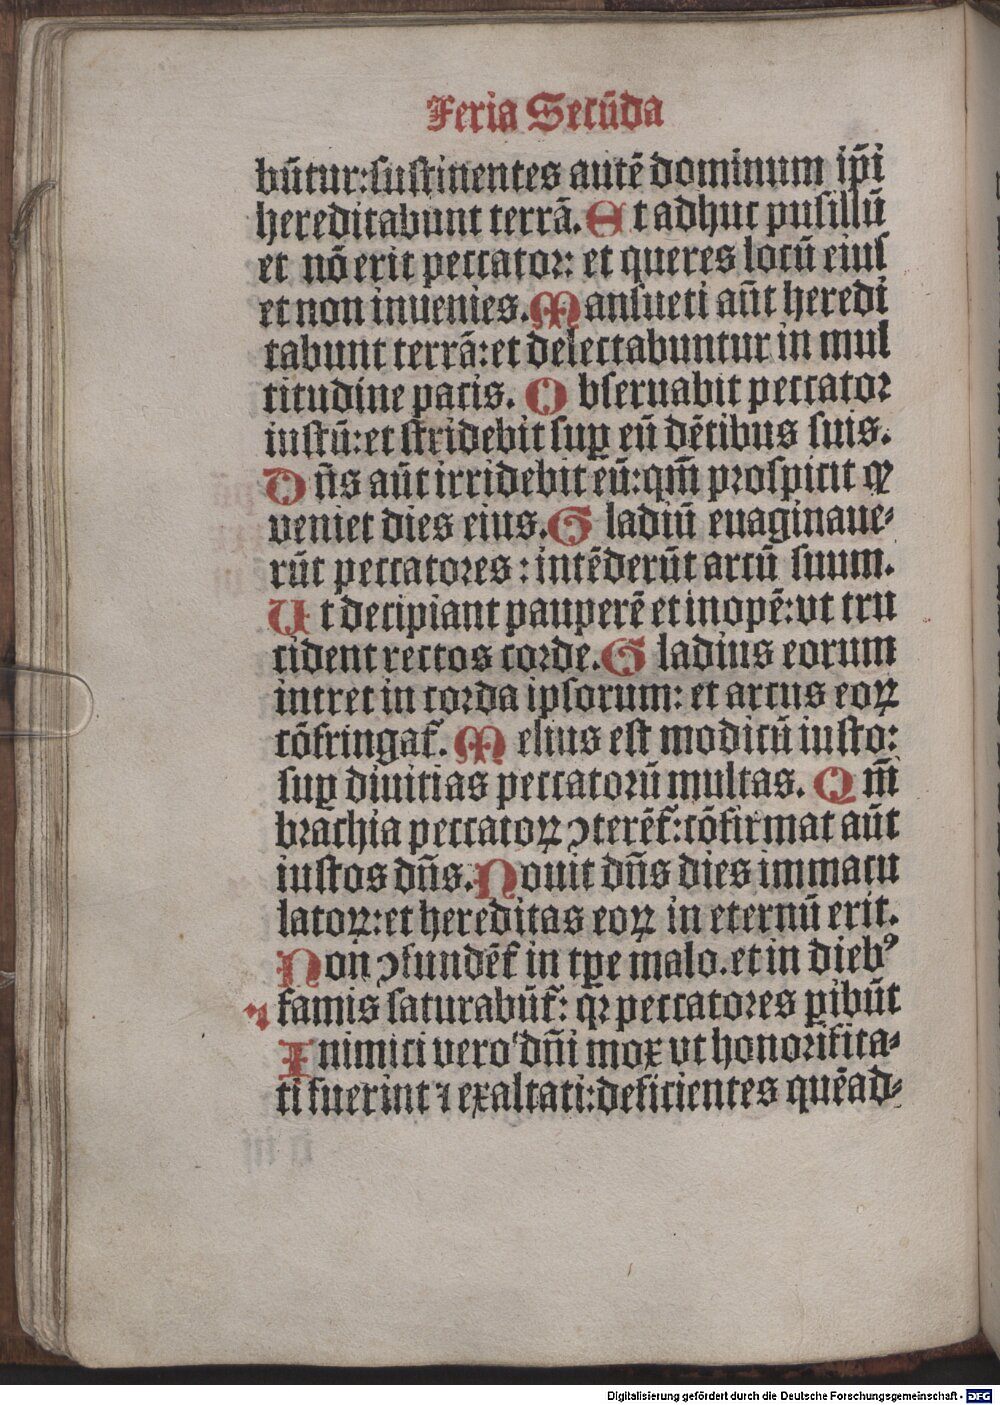 Feria Secūda
būtur:sustinentes autē dominum ip̄i
hereditabunt terrā. Et adhuc pusillū
et nō erit peccator: et queres locū eius
et non inuenies. Mansueti aūt heredi
tabunt terrā:et delectabuntur in mul
titudine pacis. Obseruabit peccator
iustū:et stridebit suꝑ eū dētibus suis.
Dn̄s aūt irridebit eū:qm̄ prospicit ꝙ
veniet dies eius. Gladiū euaginaue-
rūt peccatores : intēderūt arcū suum.
Ut decipiant pauperē et inopē:vt tru
cident rectos corde. Gladius eorum
intret in corda ipsorum: et arcus eoꝝ
cōfringat᷑. Melius est modicū iusto:
suꝑ diuitias peccatorū multas. Qm̄
brachia peccatoꝝ ꝯterēt᷑:cōfirmat aūt
iustos dn̄s. Nouit dn̄s dies immacu
latoꝝ:et hereditas eoꝝ in eternū erit.
Non ꝯfundēt᷑ in tꝑe malo.et in diebꝰ
famis saturabūt᷑: qꝛ peccatores ꝑibūt
Inimici vero dn̄i mox vt honorifica-
ti fuerint ⁊ exaltati:deficientes quēad-
Digitalisierung gefördert durch die Deutsche Forschungsgemeinschaft - DFG